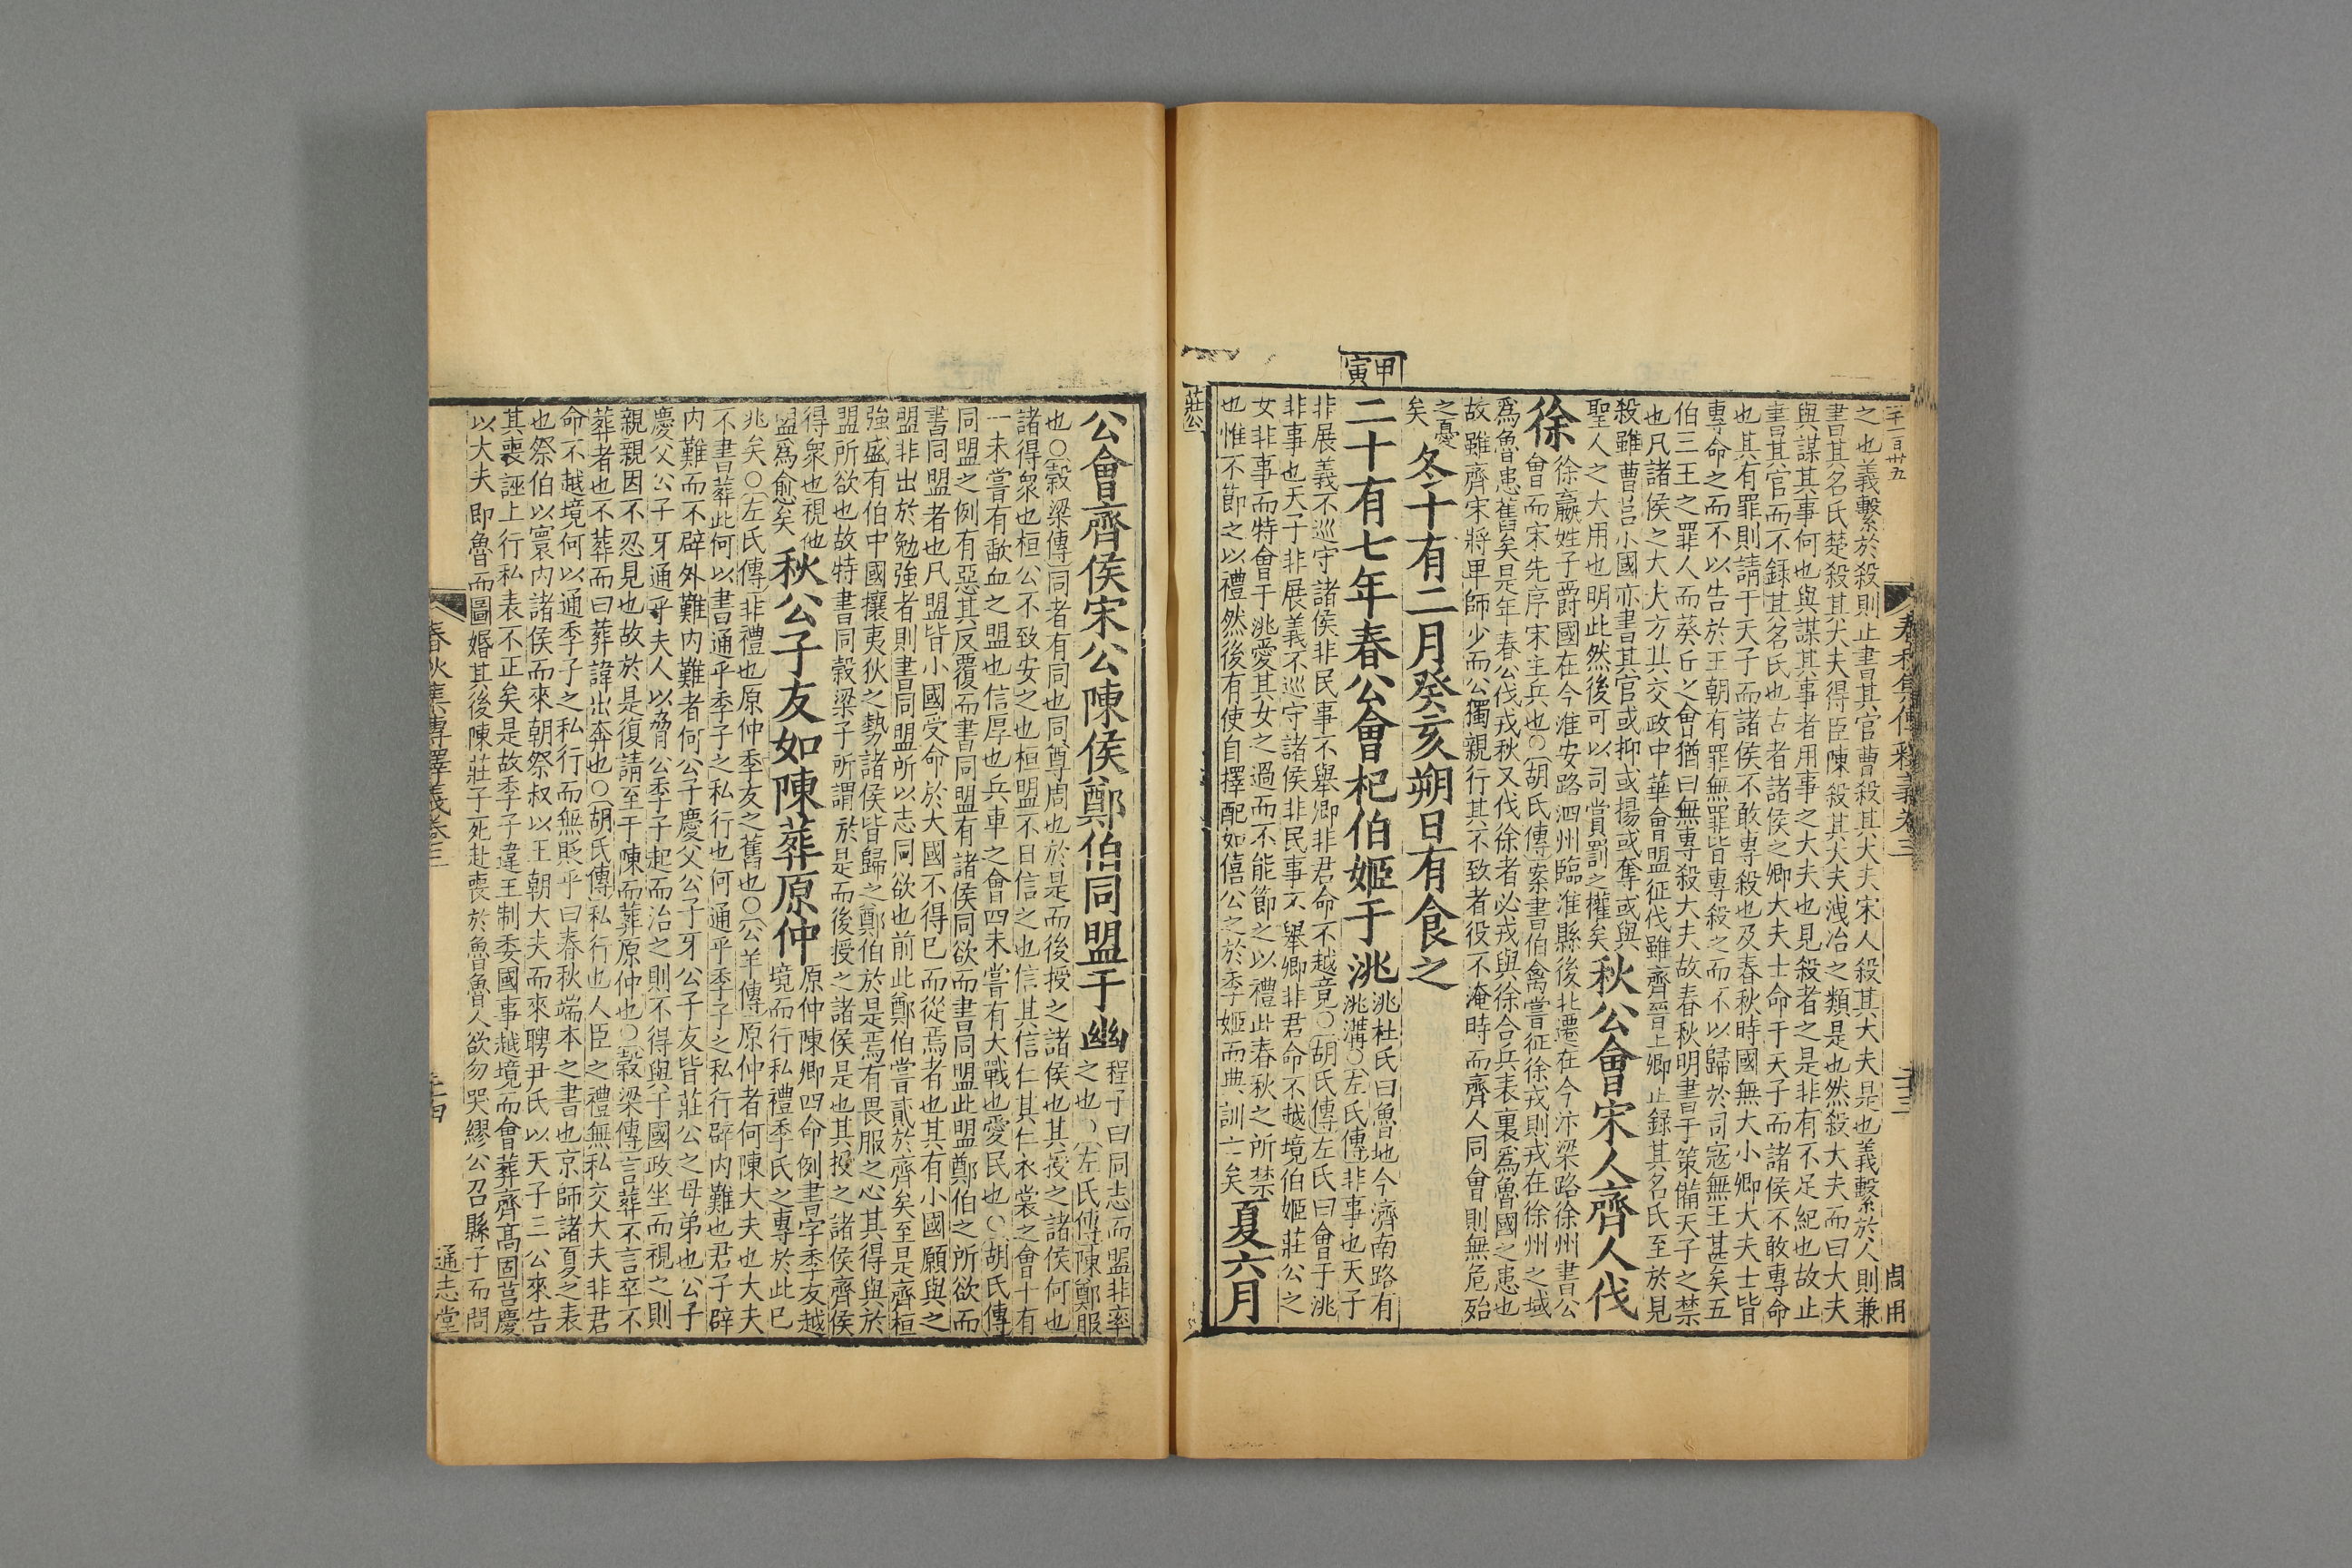 春秋集傳釋義卷三
周用
之也義繫於殺則止書其官曹殺其大夫宋人殺其大夫是也義繫於人則兼
書其名氏楚殺其大夫得臣陳殺其大夫洩冶之類是也然殺大夫而曰大夫
與謀其事何也與謀其事者用事之大夫也見殺者之是非有不足紀也故止
書其官而不録其名氏也古者諸侯之卿大夫士命于天子而諸侯不敢專命
也其有罪則請于天子而諸侯不敢專殺也及春秋時國無大小卿大夫士皆
專命之而不以告於王朝有罪無罪皆專殺之而不以歸於司寇無王甚矣五
伯三王之罪人而葵丘之會猶曰無專殺大夫故春秋明書于策備天子之禁
也凡諸侯之大夫方其交政中華會盟征伐雖齊晉上卿止録其名氏至於見
殺雖曹莒小國亦書其官或抑或揚或奪或與
聖人之大用也明此然後可以司賞罰之權矣
秋公會宋人齊人伐
徐
徐嬴姓子爵國在今淮安路泗州臨淮縣後北遷在今汴梁路徐州書公
會而宋先序宋主兵也○胡氏傳案書伯禽嘗征徐戎則戎在徐州之域
爲魯患舊矣是年春公伐戎秋又伐徐者必戎與徐合兵表裏爲魯國之患也
故雖齊宋將卑師少而公獨親行其不致者役不淹時而齊人同會則無危殆
之憂
矣
冬十有二月癸亥朔日有食之
甲寅
二十有七年春公會杞伯姬于洮
洮杜氏曰魯地今濟南路有
洮溝○左氏傳非事也天子
非展義不巡守諸侯非民事不舉卿非君命不越竟○胡氏傳左氏曰會于洮
非事也天子非展義不巡守諸侯非民事不舉卿非君命不越境伯姬莊公之
女非事而特會于洮愛其女之過而不能節之以禮此春秋之所禁
也惟不節之以禮然後有使自擇配如僖公之於季姬而典訓亡矣
夏六月
莊公
公會齊侯宋公陳侯鄭伯同盟于幽
程子曰同志而盟非率
之也○左氏傳陳鄭服
也○穀梁傳同者有同也同尊周也於是而後授之諸侯也其授之諸侯何也
諸得衆也桓公不致安之也桓盟不日信之也信其信仁其仁衣裳之會十有
一未嘗有歃血之盟也信厚也兵車之會四未嘗有大戰也愛民也○胡氏傳
同盟之例有惡其反覆而書同盟有諸侯同欲而書同盟此盟鄭伯之所欲而
書同盟者也凡盟皆小國受命於大國不得已而從焉者也其有小國願與之
盟非出於勉強者則書同盟所以志同欲也前此鄭伯嘗貳於齊矣至是齊桓
強盛有伯中國攘夷狄之勢諸侯皆歸之鄭伯於是焉有畏服之心其得與於
盟所欲也故特書同穀梁子所謂於是而後授之諸侯是也其授之諸侯齊侯
得衆也視他
盟爲愈矣
秋公子友如陳葬原仲
原仲陳卿四命例書字季友越
境而行私禮季氏之專於此巳
兆矣○左氏傳非禮也原仲季友之舊也○公羊傳原仲者何陳大夫也大夫
不書葬此何以書通乎季子之私行也何通乎季子之私行辟内難也君子辟
内難而不辟外難内難者何公子慶父公子牙公子友皆莊公之母弟也公子
慶父公子牙通乎夫人以脅公季子起而治之則不得與于國政坐而視之則
親親因不忍見也故於是復請至于陳而葬原仲也○穀梁傳言葬不言卒不
葬者也不葬而曰葬諱出奔也○胡氏傳私行也人臣之禮無私交大夫非君
命不越境何以通季子之私行而無貶乎曰春秋端本之書也京師諸夏之表
也祭伯以寰内諸侯而來朝祭叔以王朝大夫而來聘尹氏以天子三公來告
其喪誣上行私表不正矣是故季子違王制委國事越境而會葬齊高固莒慶
以大夫即魯而圖婚其後陳莊子死赴喪於魯魯人欲勿哭繆公召縣子而問
春秋集傳釋義卷三
通志堂